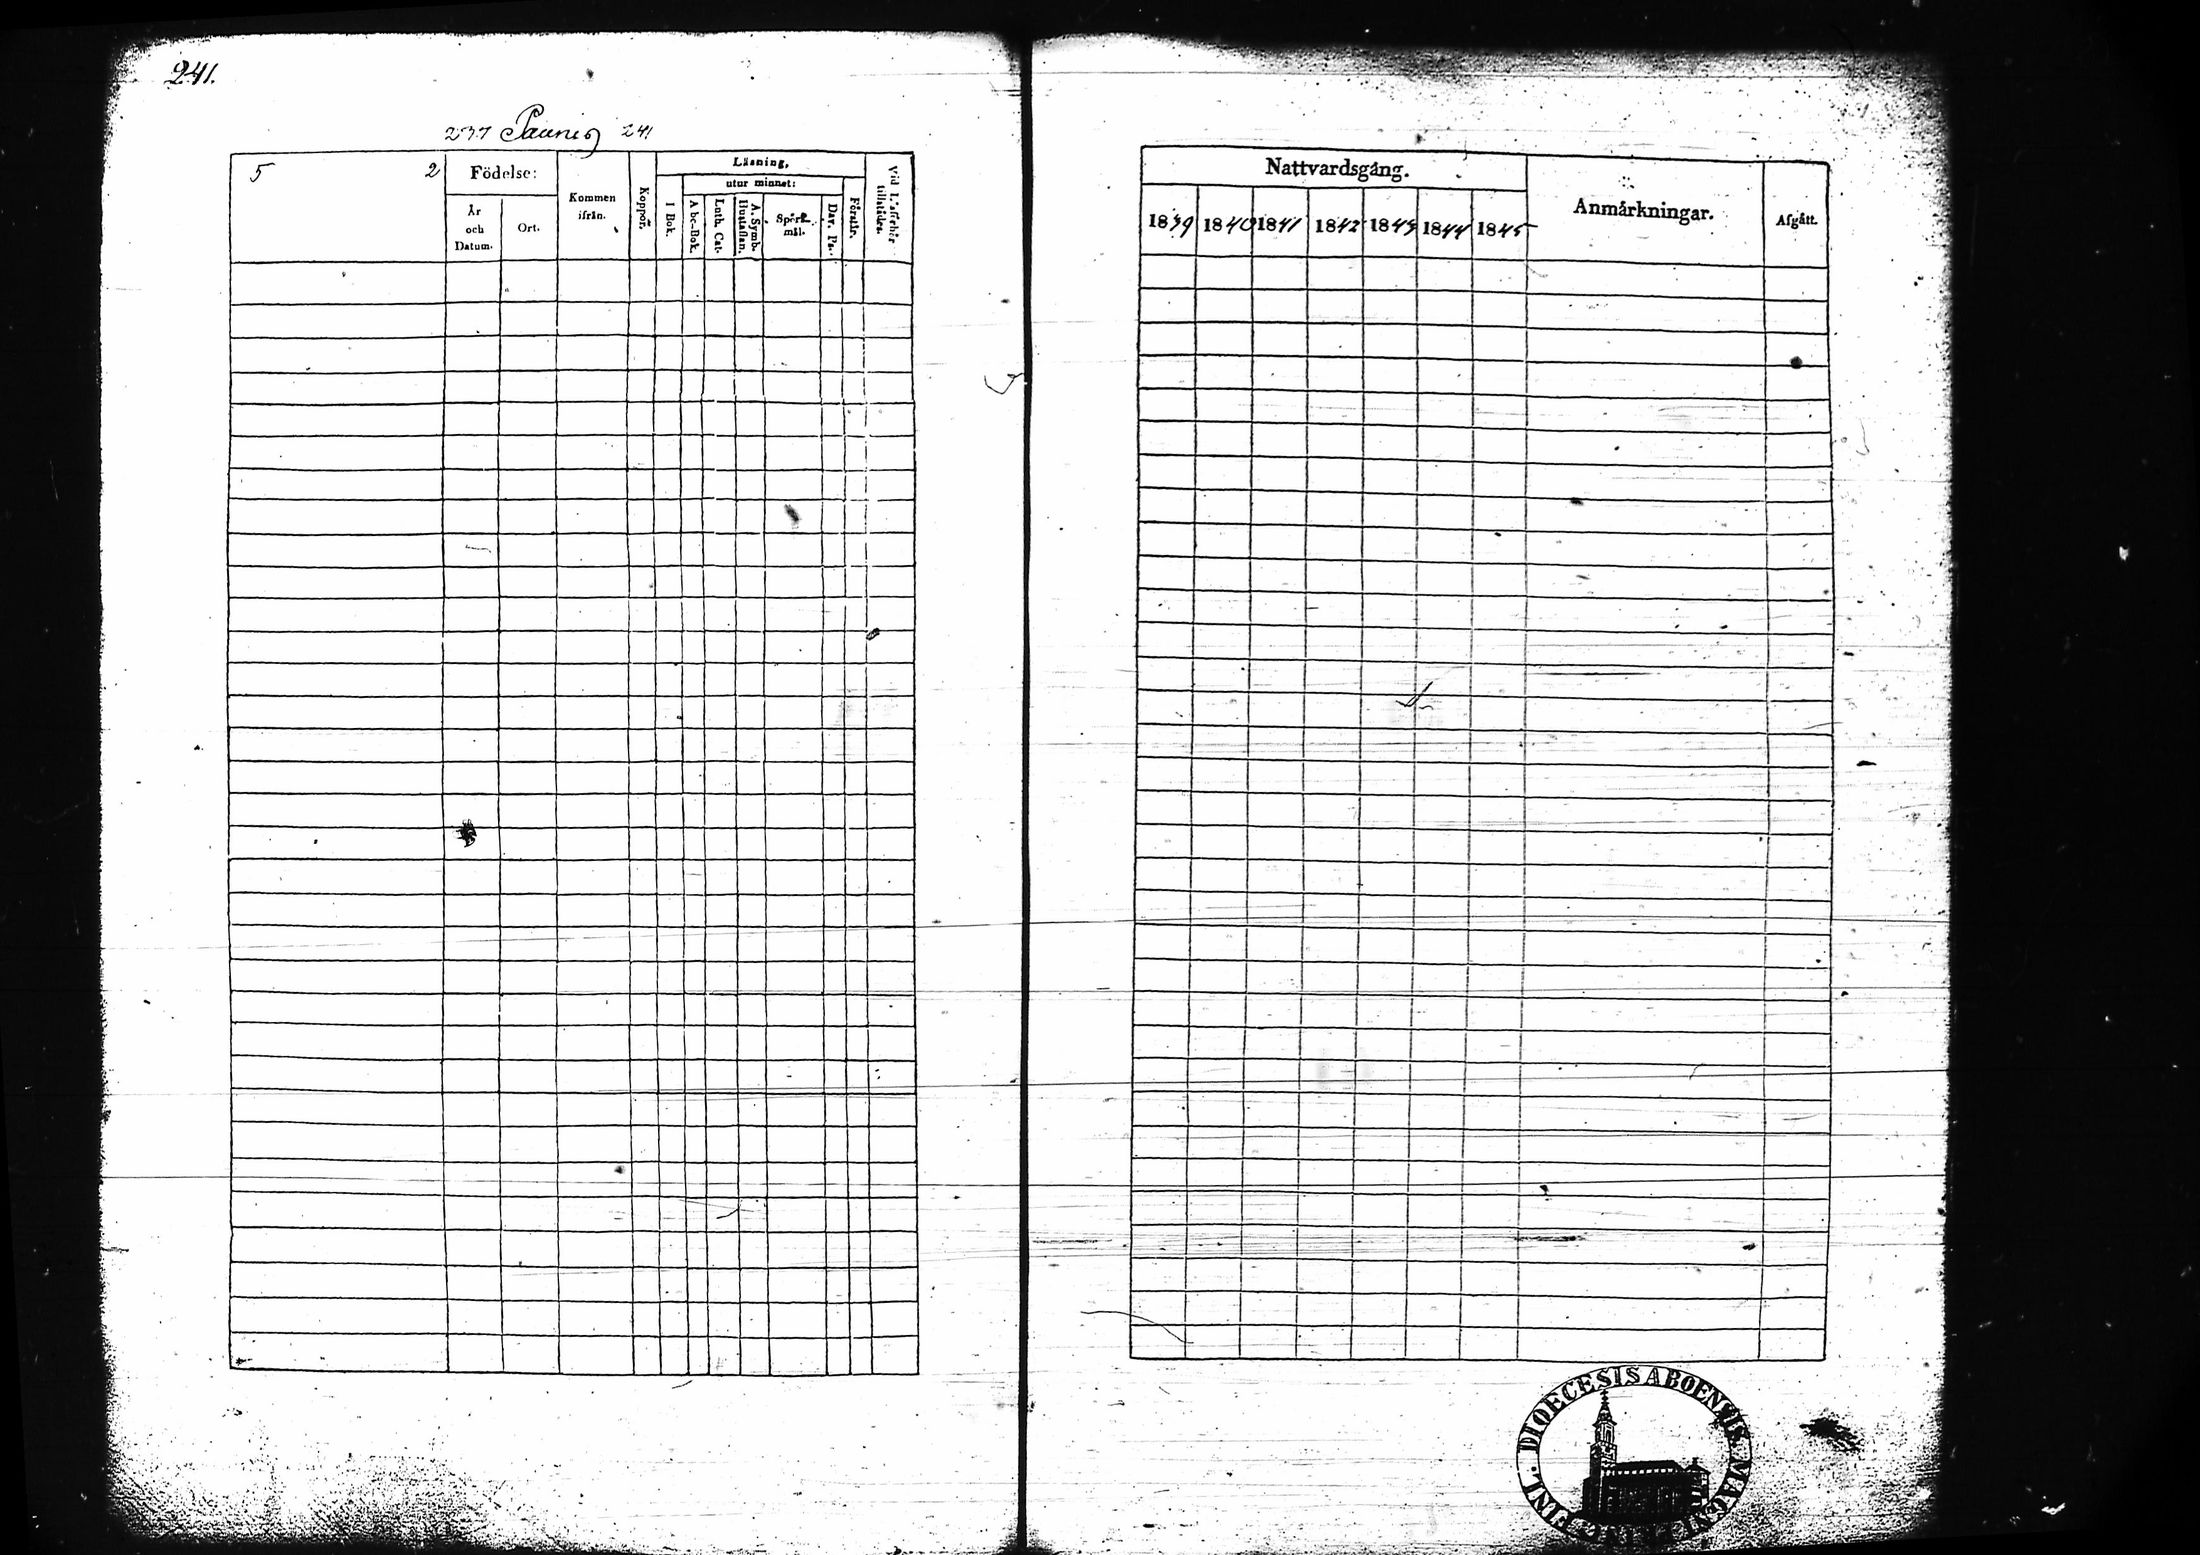 241.
237 Paunis 241
5 2 Födelse: Kommen ifrån. Koppor. Läsning, Vid Läseförhör tillstädes.
utur minnet:
År och Datum. Ort. I Bok. Abc-Bok. Luth. Cat. A. Symb. Hustaflan. Spörsmål. Dav. Ps. Förstår.
Nattvardsgång. Anmärkningar. Afgått.
1839 1840 1841 1842 1843 1844 1845
DIOECESIS ABOENSIS